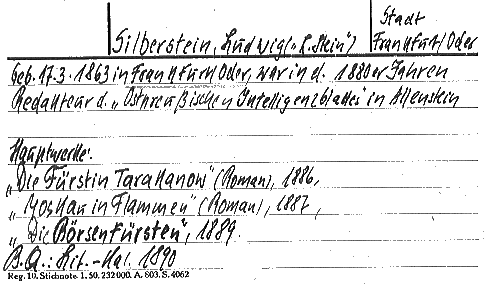 Stadt
Silberstein, Ludwig („L. Stein“) Frankfurt/Oder
geb. 17.3.1863 in Frankfurt/Oder, war in d. 1880er Jahren
Redakteur d. „Ostpreußischen Intelligenzblattes“ in Allenstein
Hauptwerke:
„Die Fürstin Tarakanow“ (Roman), 1886,
„Moskau in Flammen“ (Roman), 1887,
„Die Börsenfürsten“, 1889.
B.Q.: Lit.-Kal. 1890
Reg. 10. Stichnote. 1. 50. 232000. A. 803. S. 4062